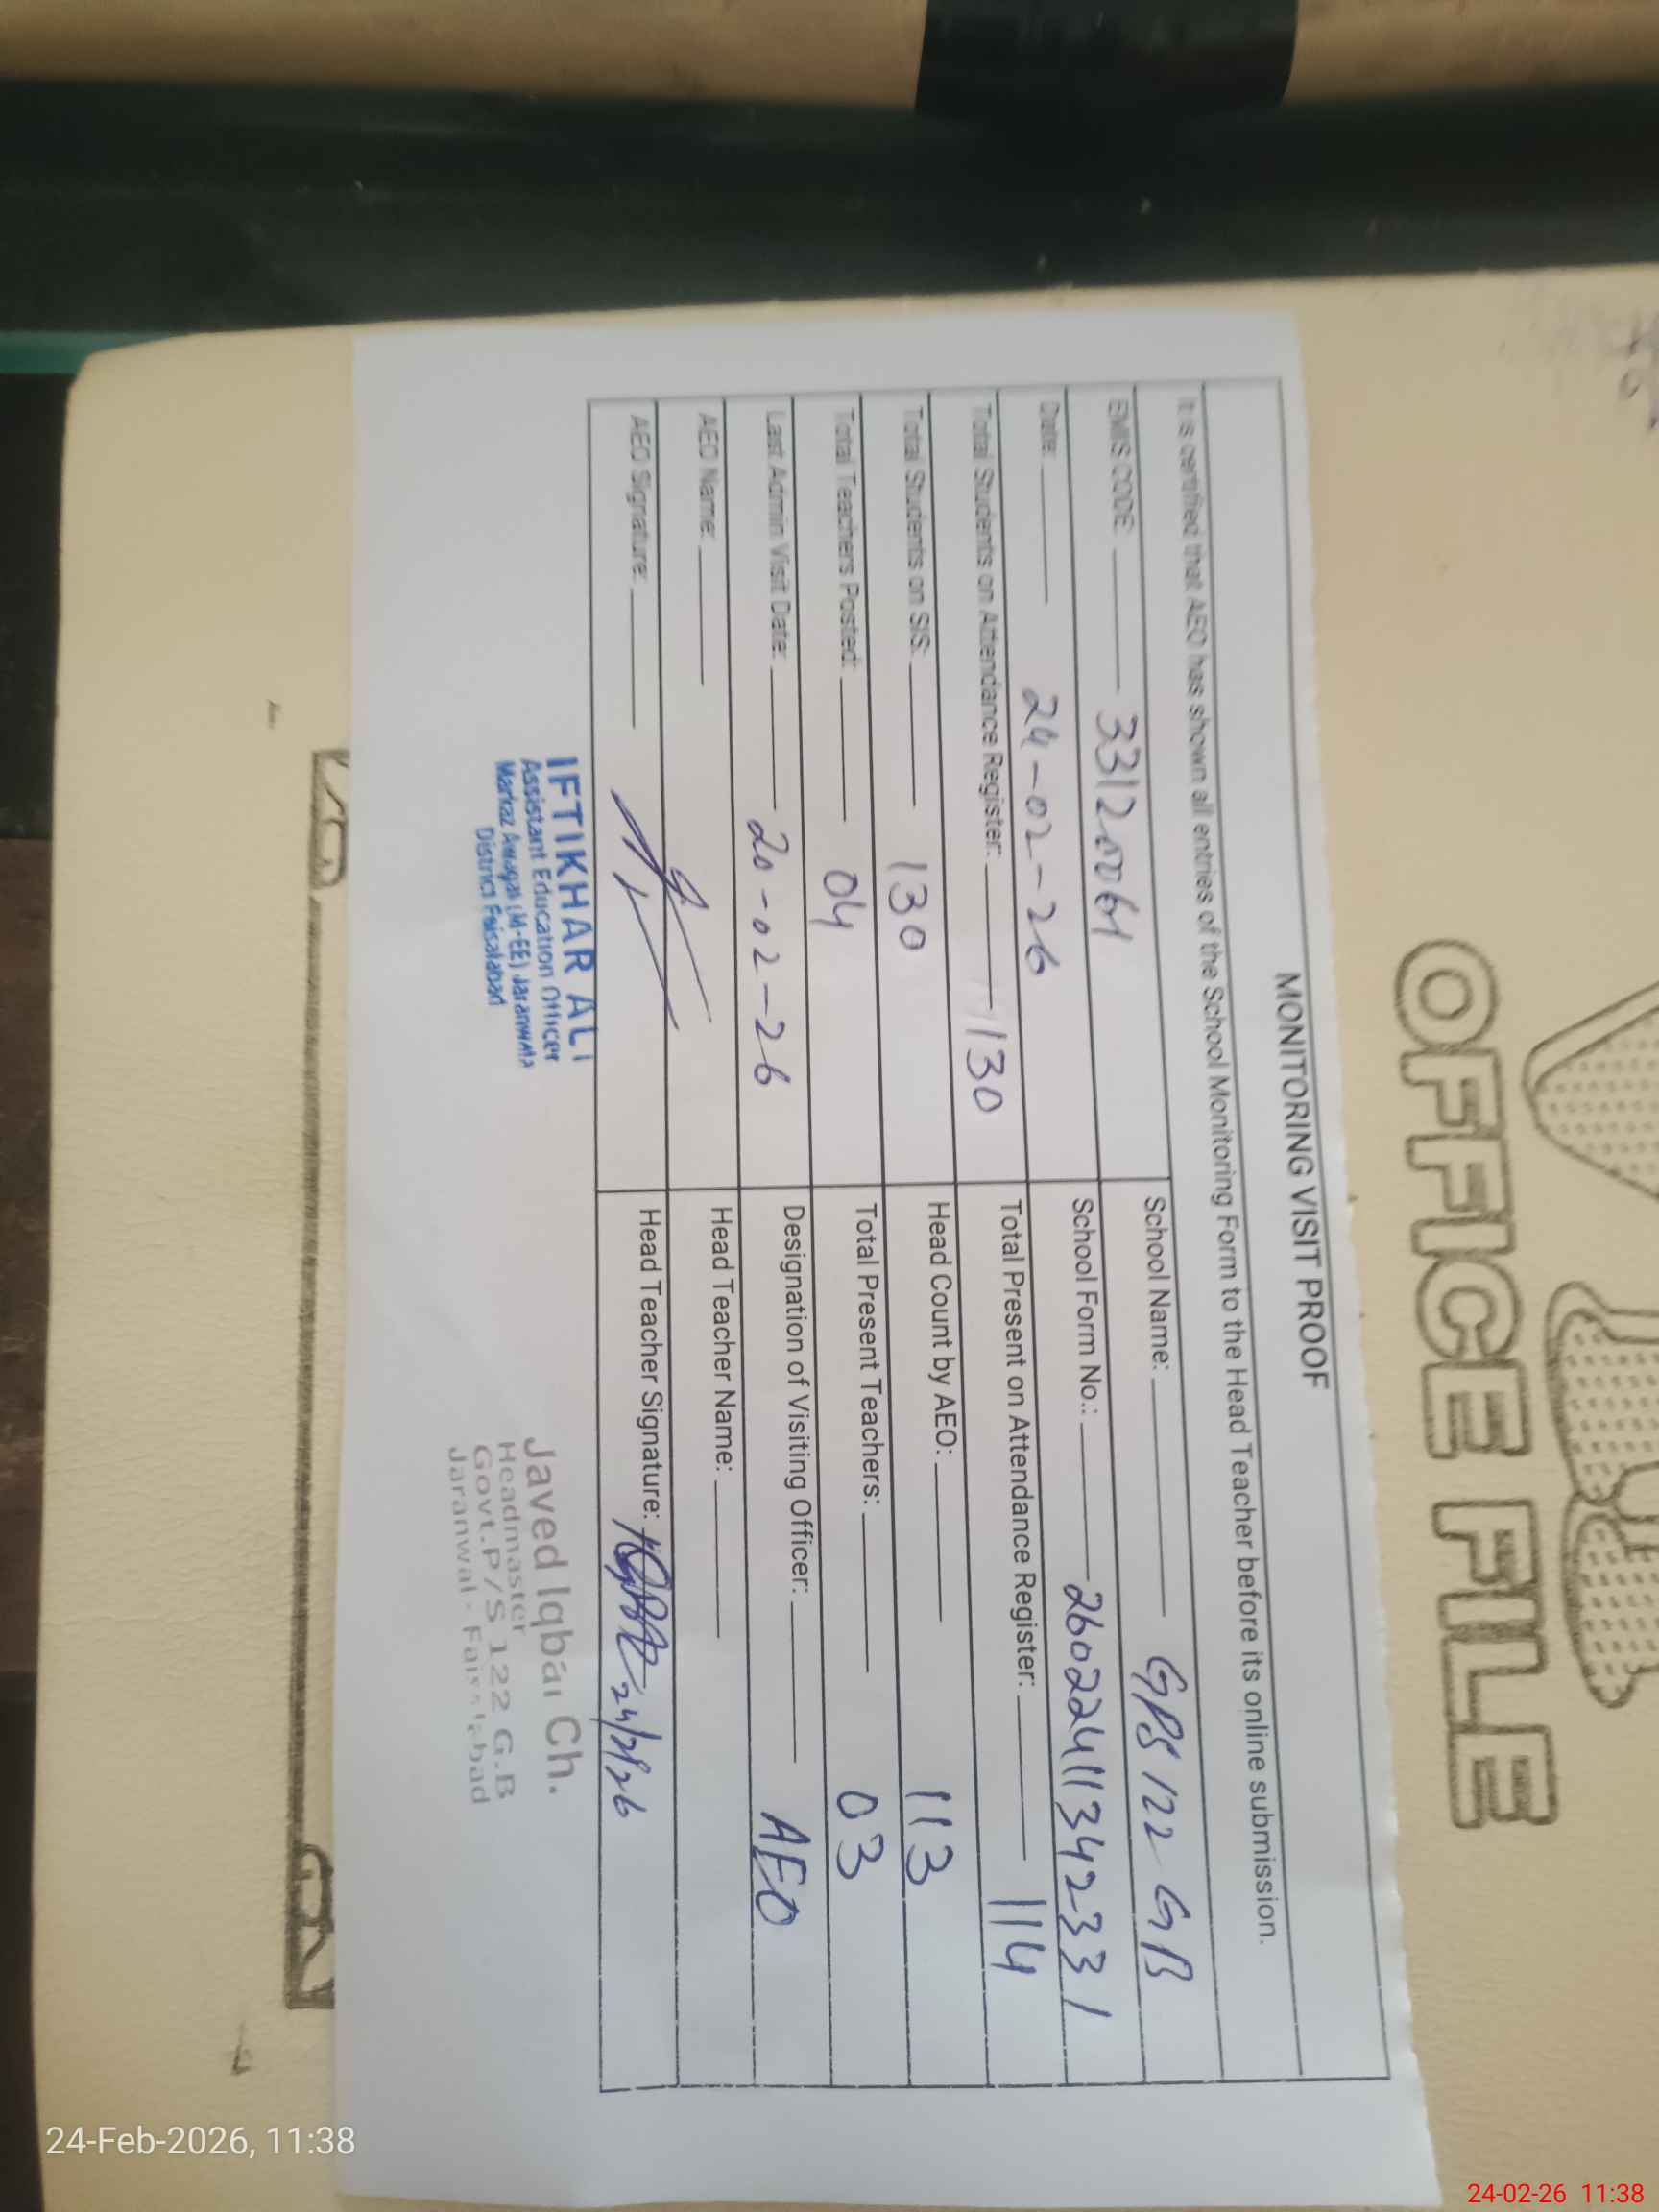 OFFICE FILE
MONITORING VISIT PROOF
It is certified that AEO has shown all entries of the School Monitoring Form to the Head Teacher before its online submission.
EMIS CODE: 33120061
School Name: GPS 122 GB
Date: 24-02-26
School Form No.: 26022411342331
Total Students on Attendance Register: 130
Total Present on Attendance Register: 114
Total Students on SIS: 130
Head Count by AEO: 113
Total Teachers Posted: 04
Total Present Teachers: 03
Last Admin Visit Date: 20-02-26
Designation of Visiting Officer: AEO
AEO Name:
Head Teacher Name:
AEO Signature:
Head Teacher Signature: 24/2/26
IFTIKHAR ALI
Assistant Education Officer
Markaz Awagat (M-EE) Jaranwala
District Faisalabad
Javed Iqbal Ch.
Headmaster
Govt.P/S 122 G.B
Jaranwal - Faisalabad
24-Feb-2026, 11:38
24-02-26 11:38